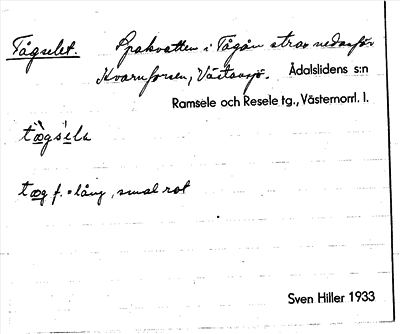 Tågselet. Spakvatten i Tågån strax nedanför
Kvarnforsen, Västansjö. Ådalslidens s:n
Ramsele och Resele tg., Västernorrl. l.
tæ̀gsè̀lɐ
tæg f. = lång, smal rot
Sven Hiller 1933